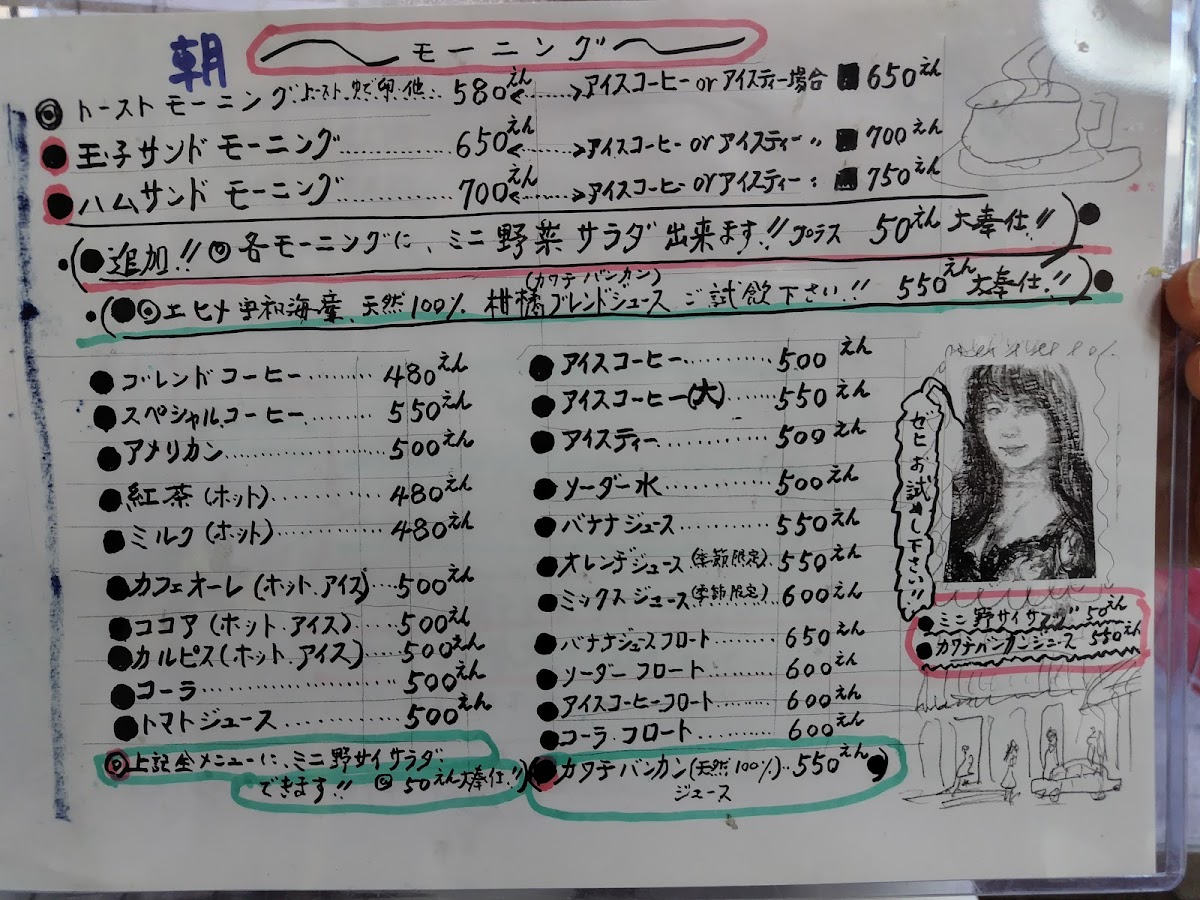 朝
モーニング
トースト モーニング(トースト、ゆで卵、他)… 580えん <……> アイスコーヒー or アイスティー場合 650えん
玉子サンド モーニング……… 650えん <……> アイスコーヒー or アイスティー 〃 700えん
ハムサンド モーニング……… 700えん <……> アイスコーヒー or アイスティー 〃 750えん
(● 追加!! ◎ 各モーニングに、ミニ野菜サラダ出来ます!! プラス 50えん 大奉仕!!)●
(カワチバンカン)
(●◎ エヒメ宇和海産、天然100% 柑橘ブレンドジュース ご試飲下さい!! 550えん 大奉仕!!)●
● ブレンドコーヒー……… 480えん
● スペシャルコーヒー…… 550えん
● アメリカン……… 500えん
● 紅茶(ホット)……… 480えん
● ミルク(ホット)……… 480えん
● カフェオーレ(ホット.アイス)… 500えん
● ココア(ホット.アイス)… 500えん
● カルピス(ホット.アイス)… 500えん
● コーラ……… 500えん
● トマトジュース……… 500えん
◎ 上記全メニューに、ミニ野サイサラダ
できます!! ◎ 50えん大奉仕!!
● アイスコーヒー……… 500えん
● アイスコーヒー(大)…… 550えん
● アイスティー……… 500えん
● ソーダー水……… 500えん
● バナナジュース……… 550えん
● オレンヂジュース(季節限定) 550えん
● ミックスジュース(季節限定) 600えん
● バナナジュースフロート… 650えん
● ソーダーフロート… 600えん
● アイスコーヒーフロート… 600えん
● コーラ.フロート… 600えん
(● カワチバンカン(天然100%)… 550えん ●)
ジュース
ゼヒお試めし下さい!!
● ミニ野サイサラダ 50えん
● カワチバンカンジュース 550えん